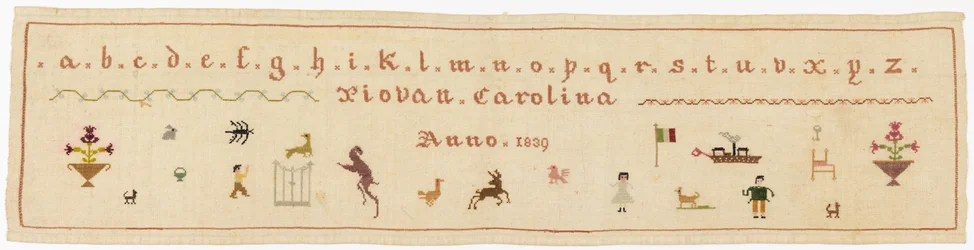 a b c d e f g h i K l m n o p q r s t u v x y z
Piovan Carolina
Anno 1839